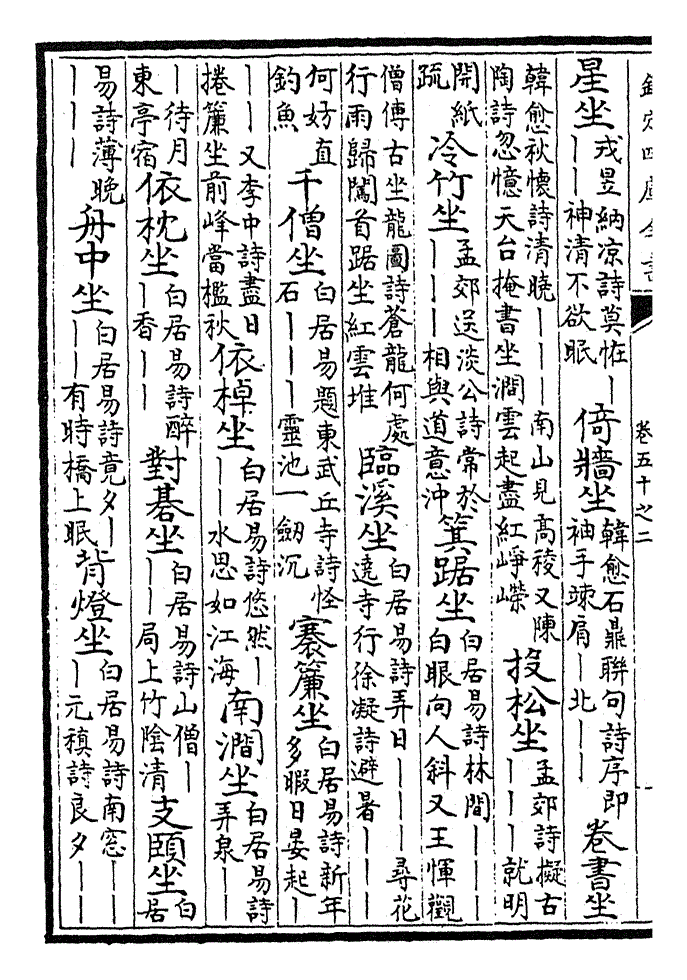 欽定四庫全書
卷五十之二
星坐戎昱納凉詩莫恠丨丨丨神清不欲眠倚牆坐韓愈石鼎聯句詩序即袖手竦肩丨北丨丨卷書坐
韓愈秋懷詩清曉丨丨丨南山見高稜又陳陶詩忽憶天台掩書坐澗雲起盡紅崢嶸投松坐孟郊詩擬古丨丨丨就明
開紙疏冷竹坐孟郊送淡公詩常於丨丨丨相與道意沖箕踞坐白居易詩林間丨丨丨白眼向人斜又王惲觀
僧傳古坐龍圖詩蒼龍何處行雨歸闖首踞坐紅雲堆臨溪坐白居易詩弄日丨丨丨尋花遶寺行徐凝詩避暑丨丨丨
何妨直釣魚千僧坐白居易題東武丘寺詩怪石丨丨丨靈池一劒沉褰簾坐白居易詩新年多暇日晏起丨
丨丨又李中詩盡日捲簾坐前峰當檻秋依棹坐白居易詩悠然丨丨丨水思如江海南澗坐白居易詩弄泉丨丨
丨待月東亭宿依枕坐白居易詩醉丨香丨丨對棊坐白居易詩山僧丨丨丨局上竹陰清支頤坐白居
易詩薄晚丨丨丨舟中坐白居易詩竟夕丨丨丨有時橋上眠背燈坐白居易詩南窓丨丨丨元稹詩良夕丨丨